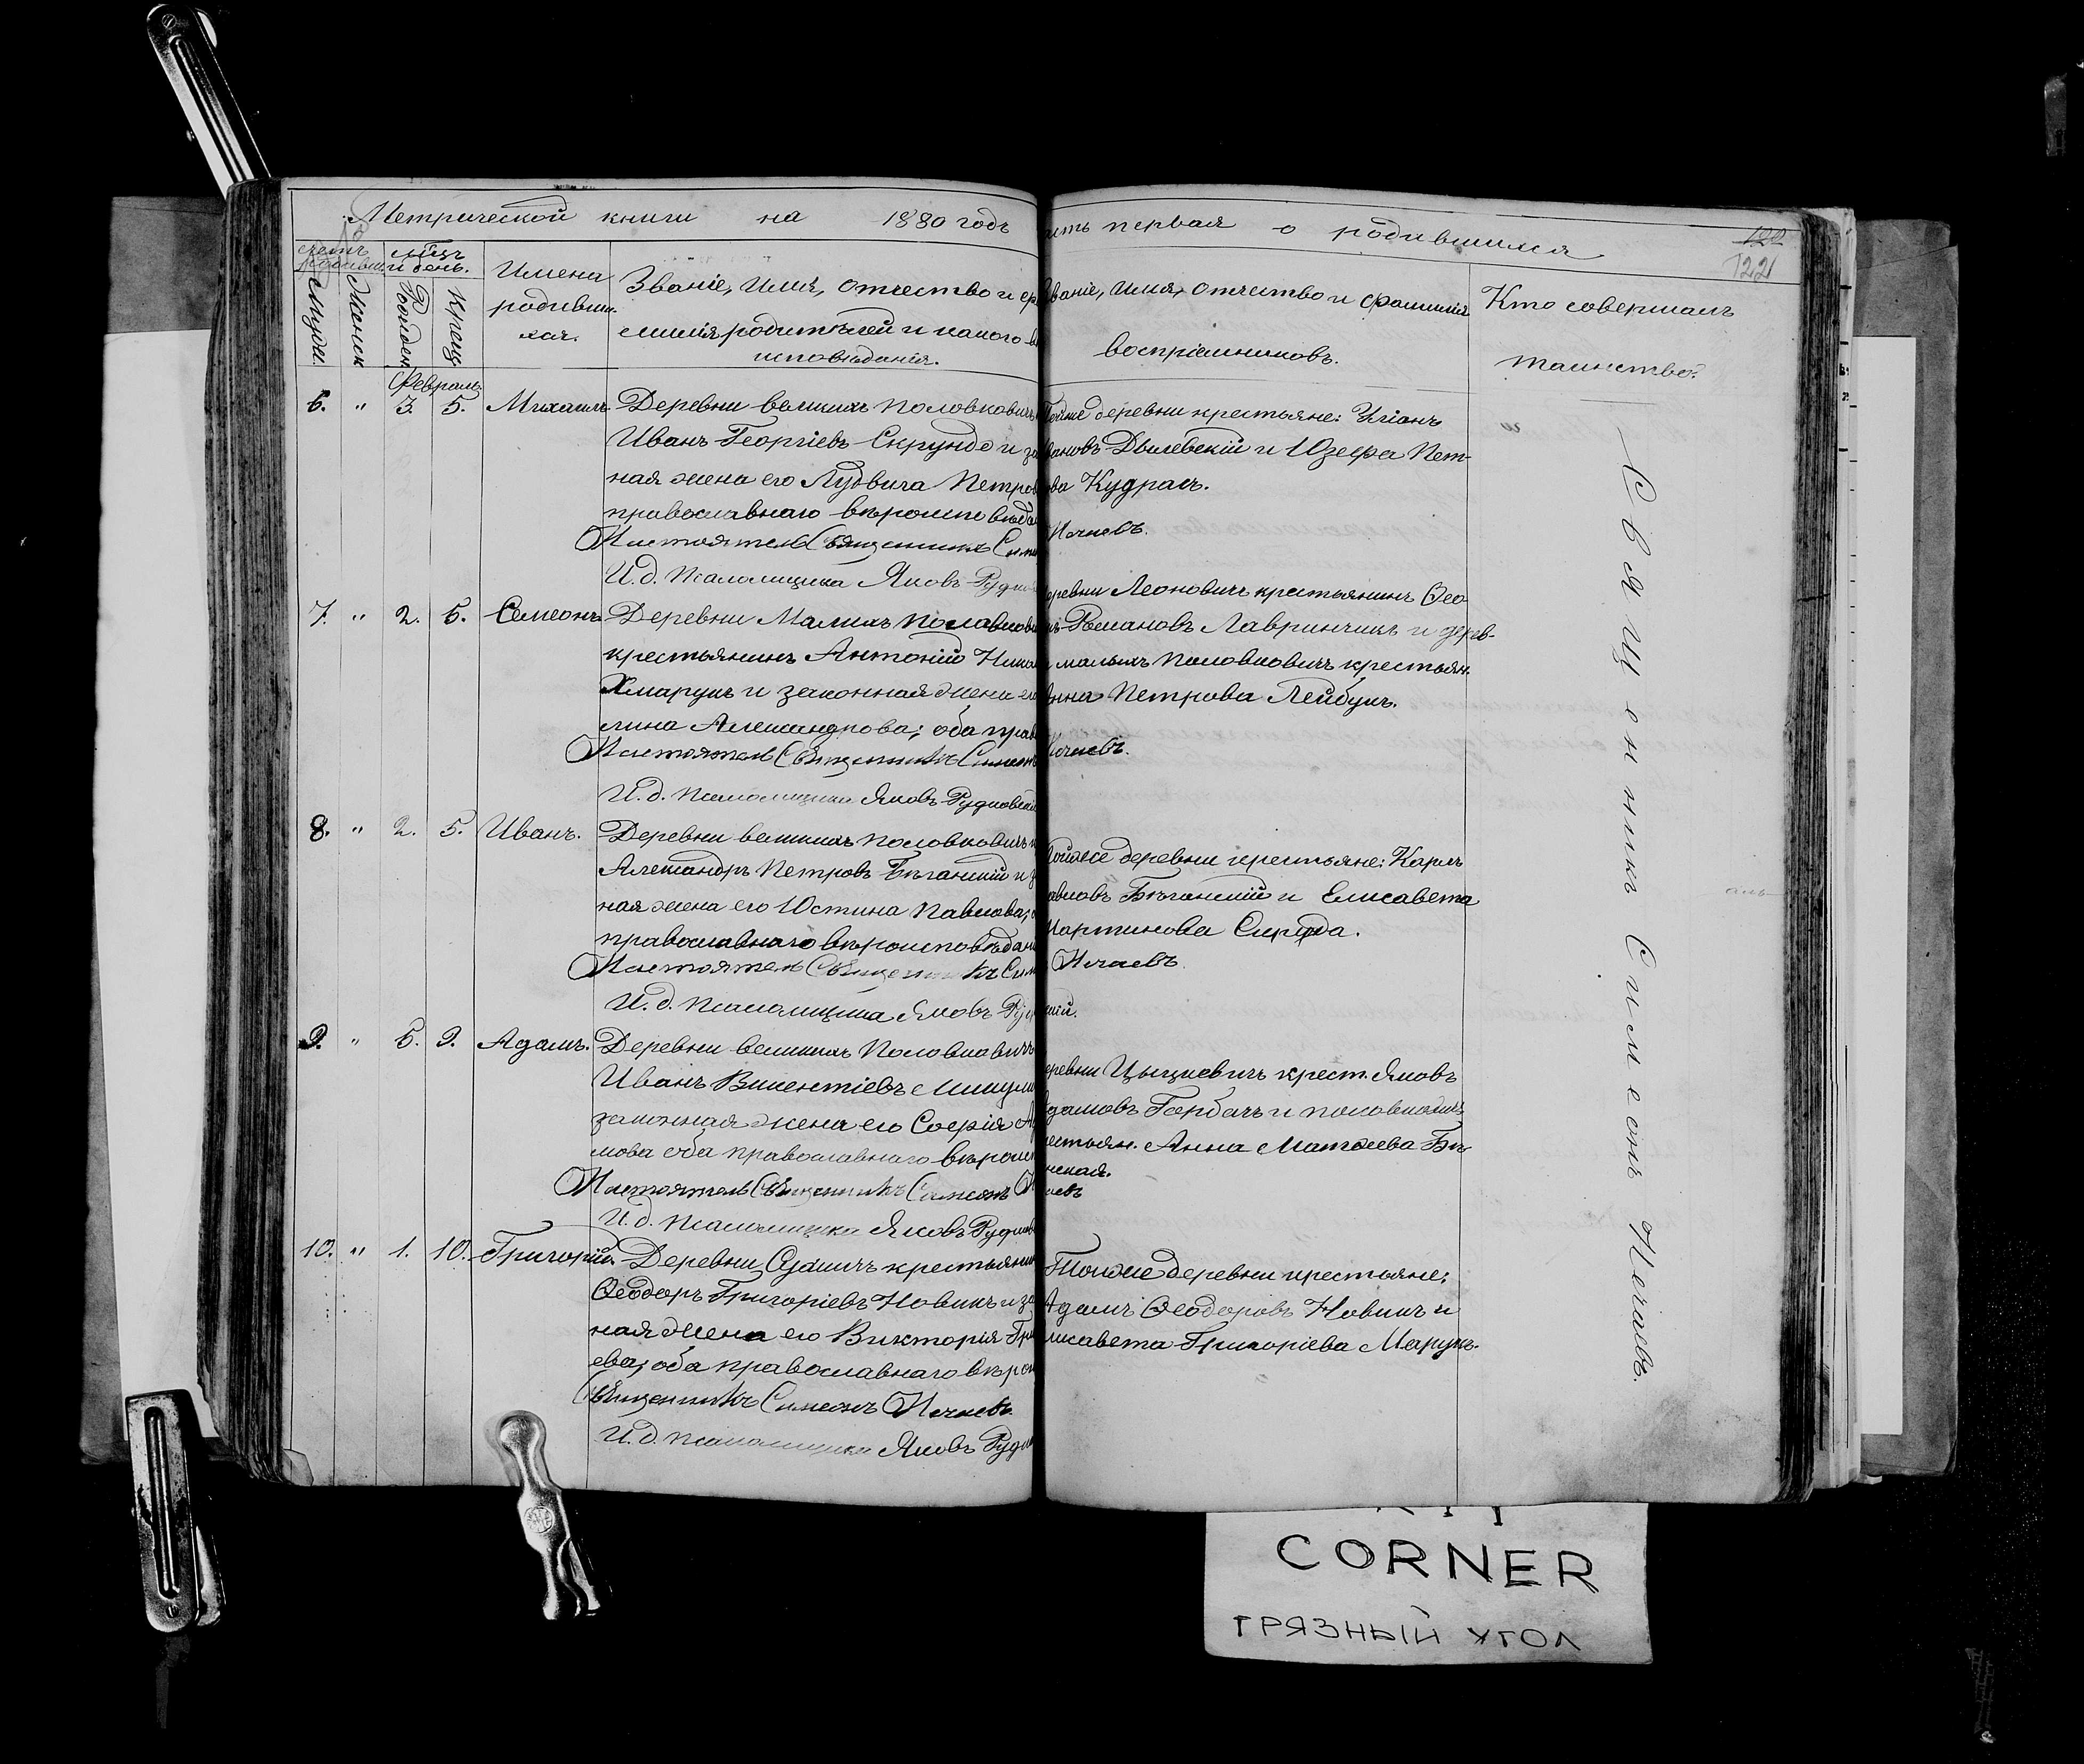 Метрической книги на 1880 годъ
асть первая о родившихся
122
122
счетъ родивш.
мѣсяцъ и день.
Мужск.
Женск
Рожден.
Крещ.
Имена
родивши-
хся.
Званіе, имя, отчество и фа-
милія родителей и какого вѣ
исповѣданія.
Званіе, имя, отчество и фамилія
воспріемниковъ.
Кто совершалъ
таинство?
Февраль
6. " 3. 5. Михаилъ. Деревни великихъ Половковичъ
Иванъ Георгіевъ Скрундо и за
ная жена его Людвига Петров
православнаго вѣроисповѣда
Настоятель Священникъ Сим
И. д. псаломщика Яковъ Рудко
Тойже деревни крестьяне:
вановъ Дылевскій и Юзефа Пет-
ва Кудрач.
Нечаевъ.
7. " 2. 5. Семеонъ. Деревни Малыхъ Половкови
крестьянинъ Антоній Никол
Хмарукъ и законная жена его
лина Александрова; оба прав
Настоятель Священникъ Симеонъ
И. д. псаломщика Яковъ Рудковскій
еревни Леоновичъ крестьянинъ Ѳео-
Романовъ Лавринчикъ и дерев-
малыхъ Половковичъ крестьян.
Анна Петрова Лейбукъ.
Нечаевъ.
8. " 2. 5. Иванъ. Деревни великихъ Половковичъ
Александръ Петровъ Бѣганскій и з
ная жена его Юстина Павлова,
православнаго вѣроисповѣдан
Настоятель Священникъ Сим
И. д. псаломщика Яковъ Руд
Тойже деревни крестьяне: Карлъ
авловъ Бѣганскій и Елисавета
Мартинова
Нечаевъ
кій.
9. " 5. 9. Адамъ. Деревни великихъ Половковичъ
Иванъ Викентіевъ
законная жена его Софія А
мова оба православнаго вѣроис
Настоятель Священникъ Симеонъ Н
И. д. псаломщика Яковъ Рудков
еревни Цыцкевичъ крест. Яковъ
Адамовъ Горбачъ и половкович
рестьян. Анна Матѳеева Бѣ-
нская.
аевъ
10. " 1. 10. Григорій. Деревни крестьянин
Ѳеодоръ Григоріевъ Новикъ и за
ная жена его Викторія Гри
ева; оба православнаго вѣрои
Священникъ Симеонъ Нечаевъ.
И. д. псаломщика Яковъ Рудк
Тойже деревни крестьяне:
Адамъ Ѳеодоровъ Новикъ и
лисавета Григоріева Марукъ.
Священникъ Симеонъ Нечаевъ.
CORNER
ГРЯЗНЫЙ УГОЛ